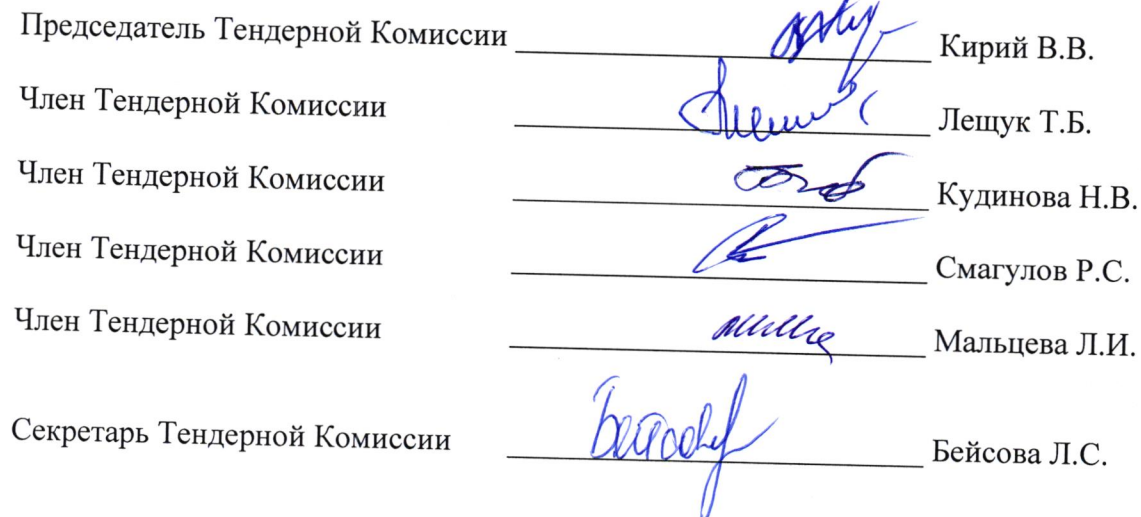 Председатель Тендерной Комиссии Кирий В.В.
Член Тендерной Комиссии Лещук Т.Б.
Член Тендерной Комиссии Кудинова Н.В.
Член Тендерной Комиссии Смагулов Р.С.
Член Тендерной Комиссии Мальцева Л.И.
Секретарь Тендерной Комиссии Бейсова Л.С.